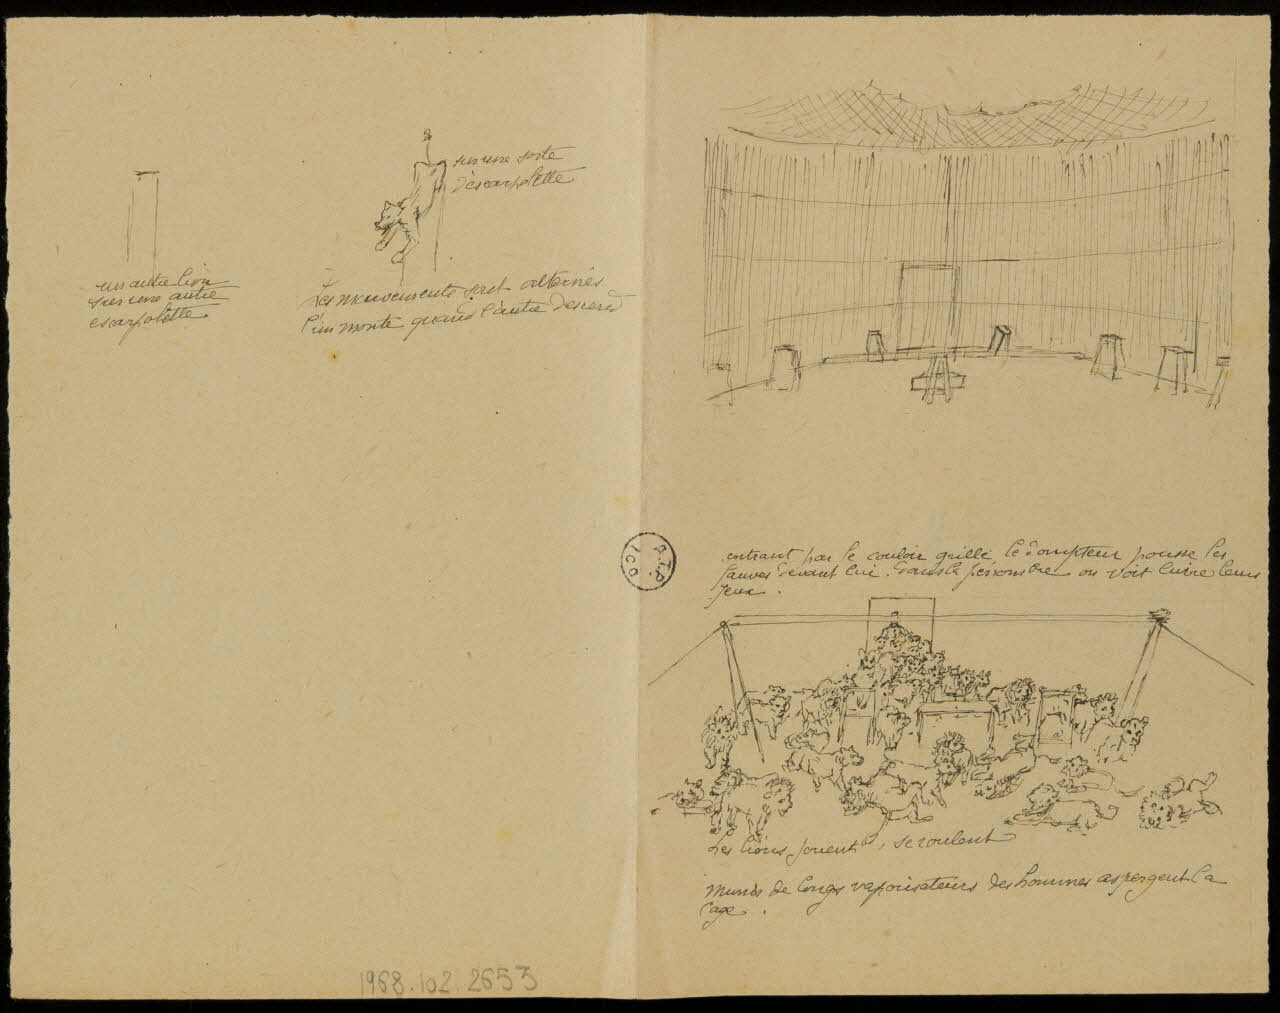 sur une sorte
d'escarpolette
un autre lion
sur une autre
escarpolette
Les mouvements sont alternés
l'un monte quand l'autre descend
entrant par le couloir grillé le dompteur pousse les
fauves devant lui. Dans la pénombre on voit luire leurs
yeux.
Les lions jouent, se roulent
Munis de longs vaporisateurs des hommes aspergent la
cage.
A.T.P.
DOC
1968.102.2653